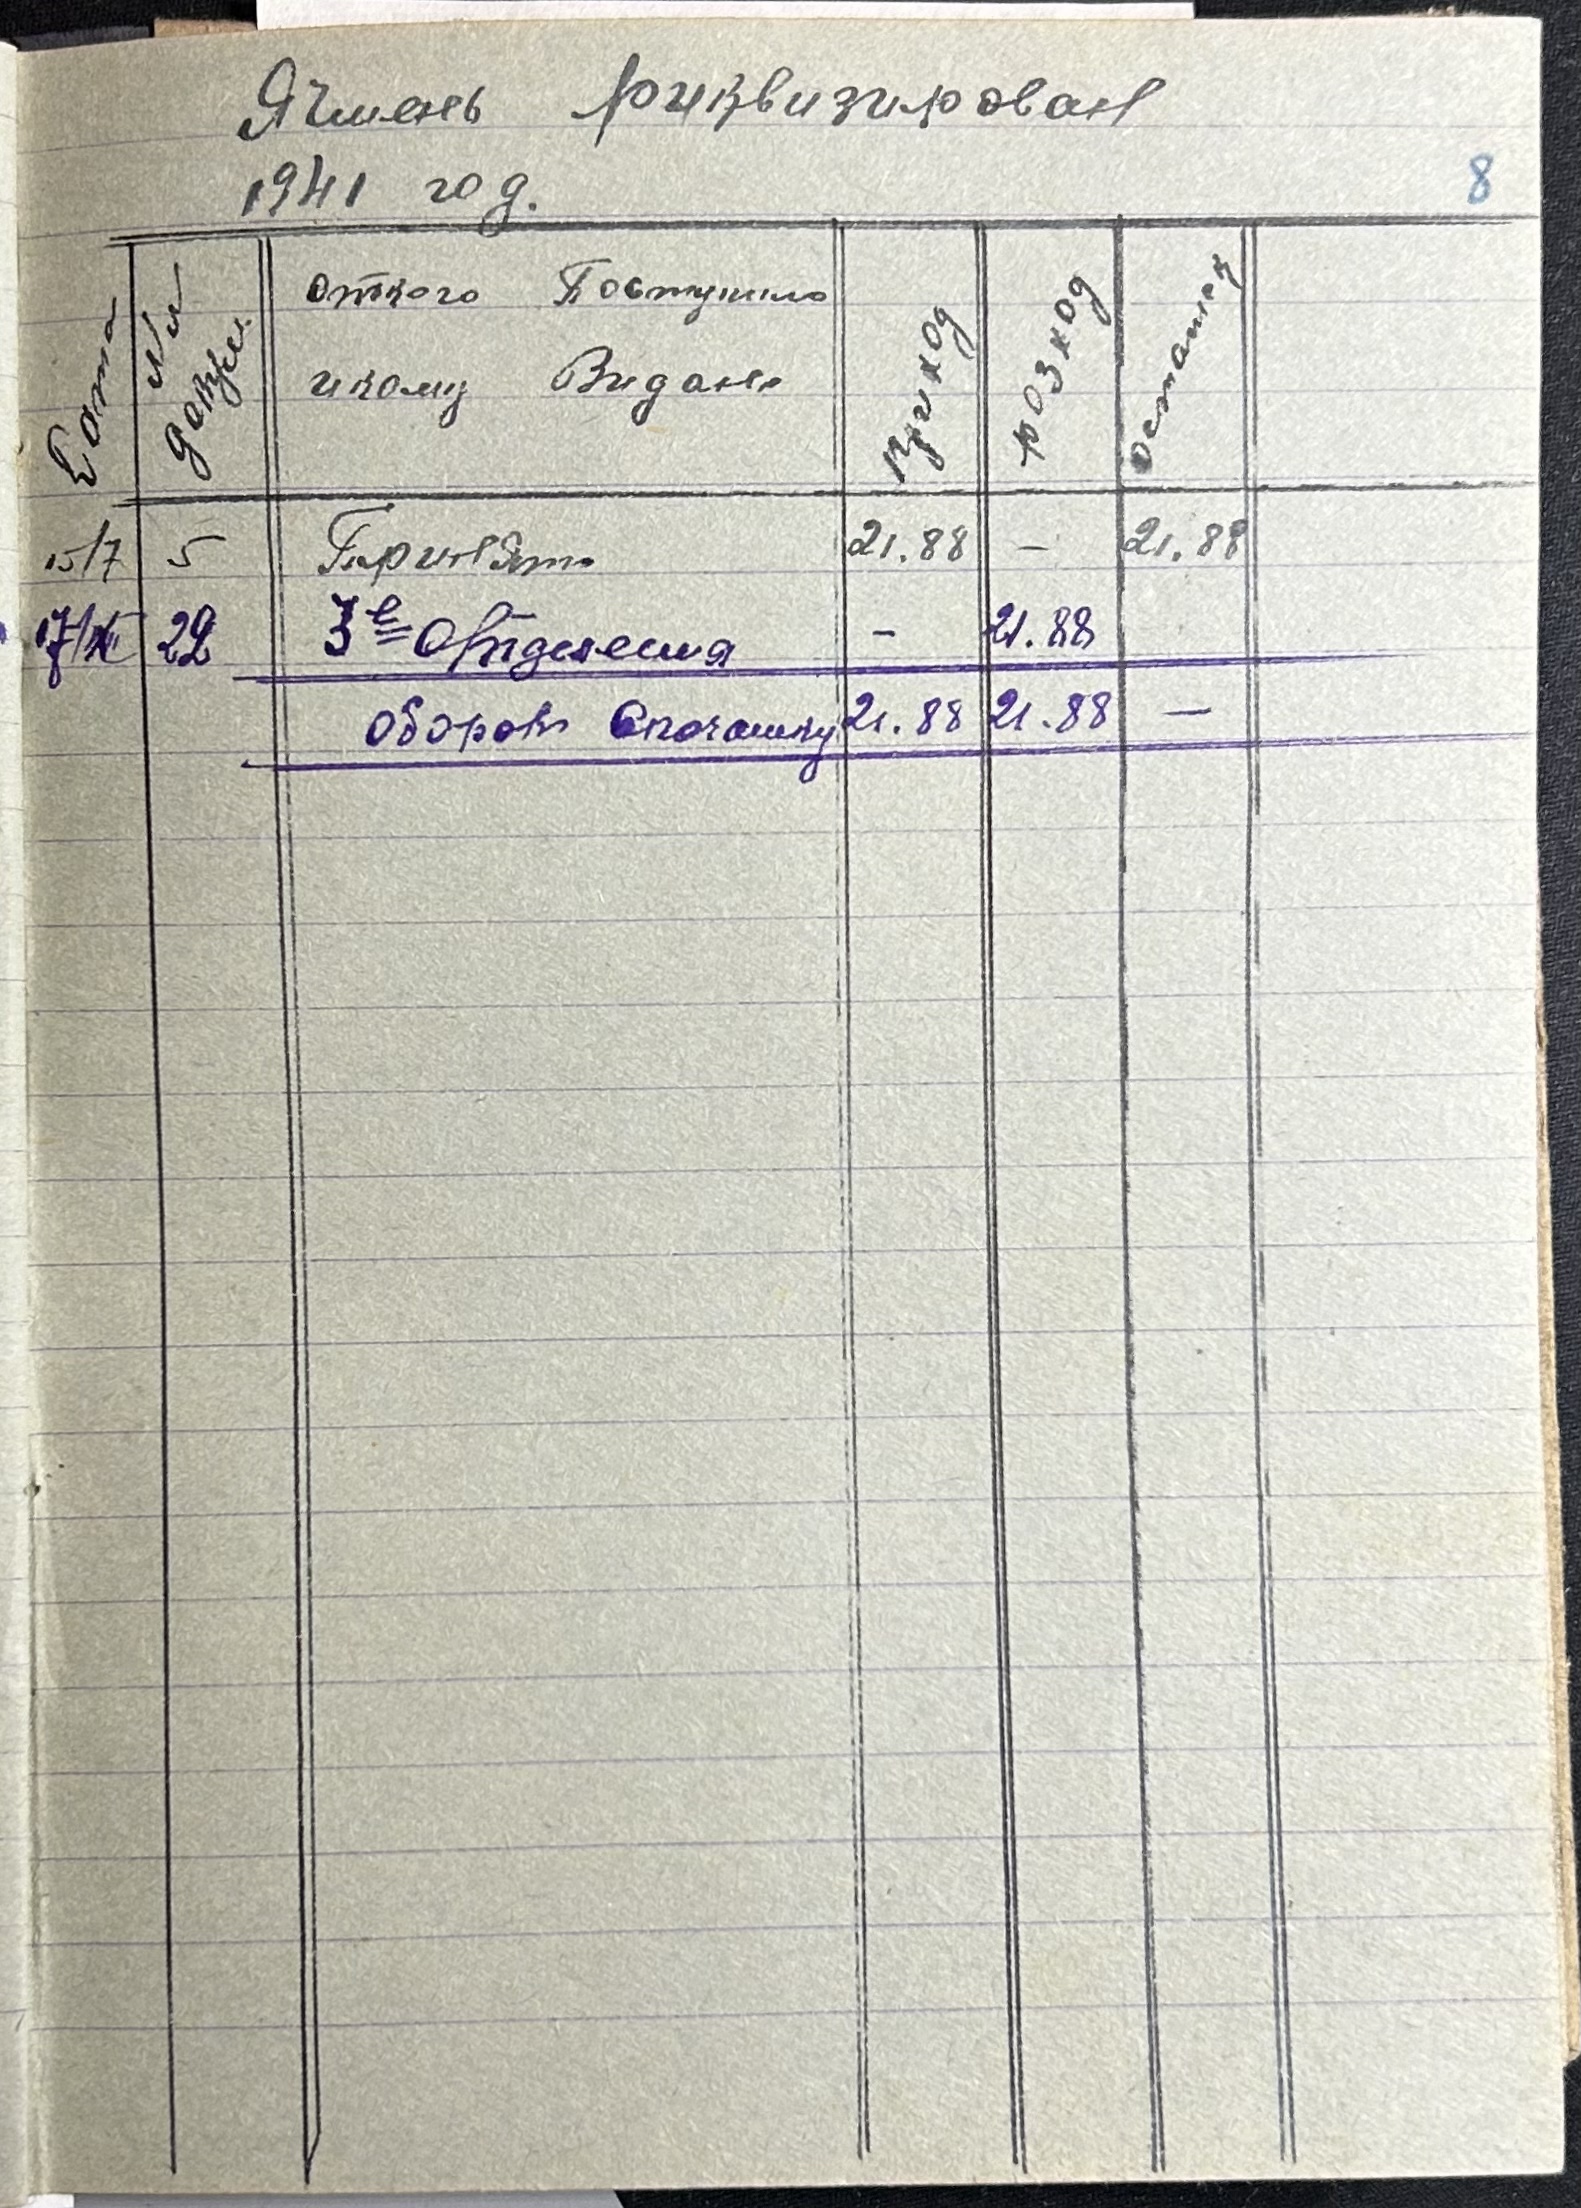 Ячмень риквизирован
1941 год.
8
Дата
№№ докум.
откого Поступило
икому Видано
приход
розход
остаток
15/7 5 Принято 21.88 – 21.88
17/XII 22 3е Отделения – 21.88
оборот Спочатку 21.88 21.88 —